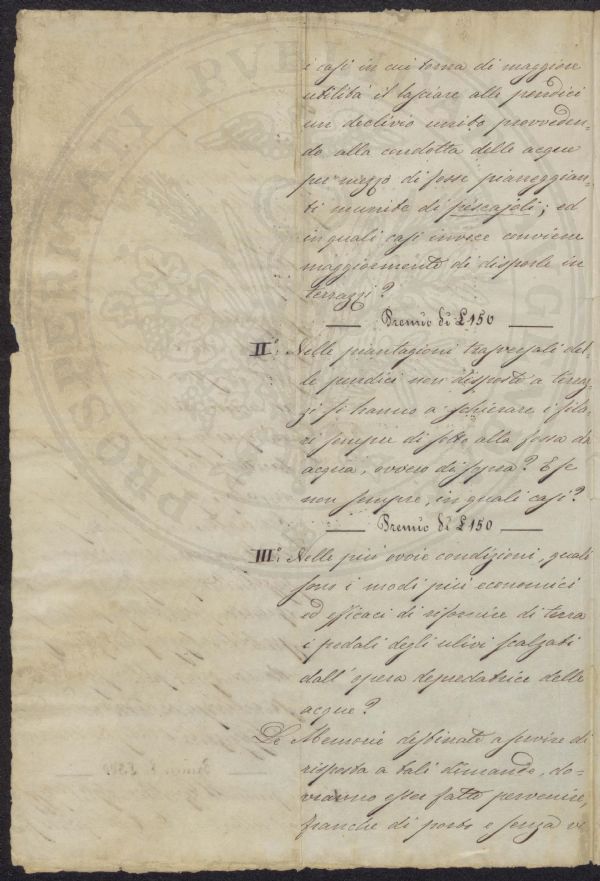 i casi in cui torna di maggiore
utilità il lasciare alle pendici
un declivio unito provveden-
do alla condotta delle acque
per mezzo di fossi pianeggian-
ti munite di pescajoli; ed
in quali casi invece conviene
maggiormente di disporle in
terrazzi?
Premio di £150
II.° Nelle piantagioni trasversali del-
le pendici non disposte a teraz-
zi si hanno a schierare i fila-
ri sempre di sotto alla fossa da
acqua, ovvero di sopra? E se
non sempre, in quali casi?
Premio di £150
III.° Nelle più ovvie condizioni, quali
sono i modi più economici
ed efficaci di rifornire di terra
i pedali degli ulivi scalzati
dall'opera depredatrice delle
acque?
Le Memorie destinate a servire di
risposta a tali dimande, do-
vranno esser fatte pervenire,
franche di porto e senza ve